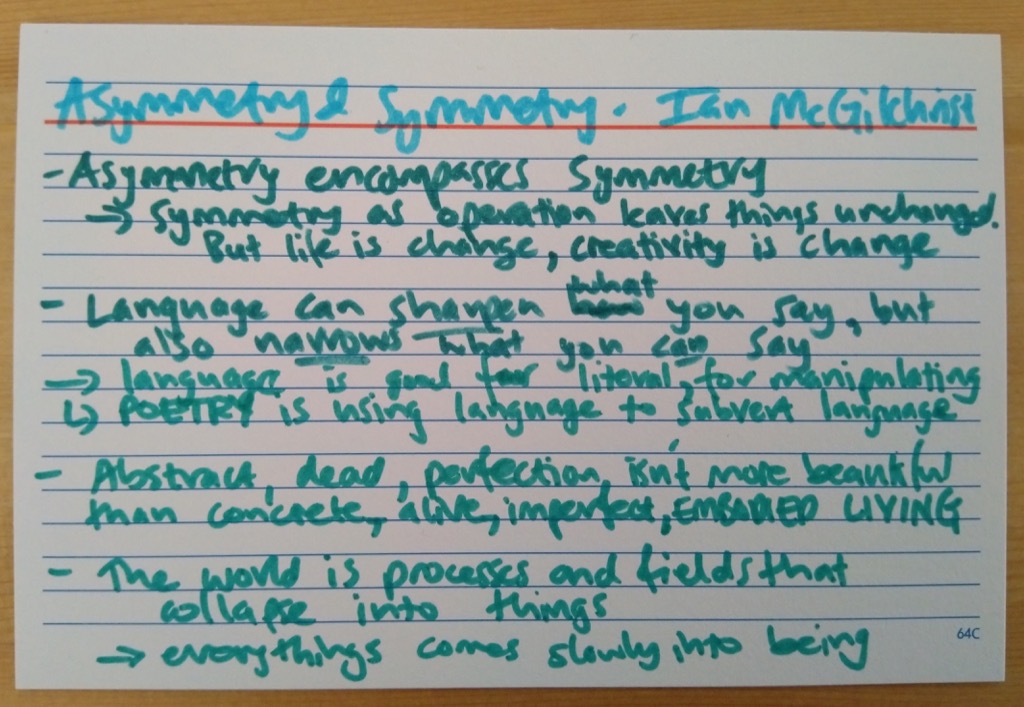 Asymmetry & Symmetry. Ian McGilchrist
- Asymmetry encompasses Symmetry
→ Symmetry as operation leaves things unchanged.
But life is change, creativity is change
- Language can sharpen what you say, but
also narrows what you can say
→ language is good for literal, for manipulating
↳ POETRY is using language to subvert language
- Abstract, dead, perfection, isn't more beautiful
than concrete, alive, imperfect, EMBODIED LIVING
- The world is processes and fields that
collapse into things
→ everythings comes slowly into being
64C